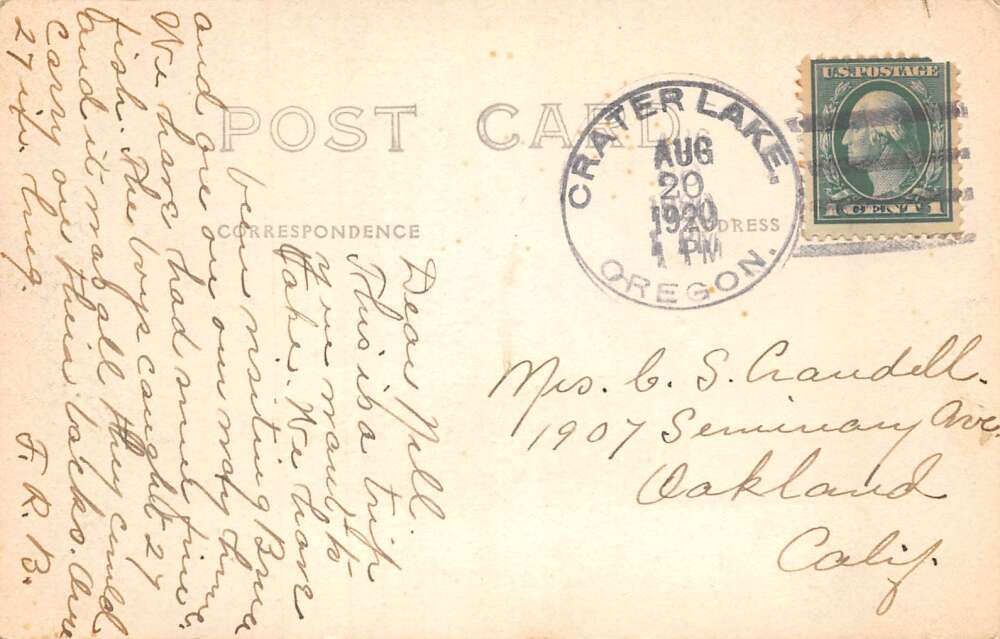 POST CARD
CORRESPONDENCE
ADDRESS
CRATER LAKE,
AUG
20
1920
1 PM
OREGON.
U.S. POSTAGE
1 CENT 1
Mrs. C. S. Crandell.
1907 Seminary Ave
Oakland
Calif.
Dear Nell
This is a trip
you want to
take. We have
been visiting Bma
and are on our way home
We have had some time.
fish. The boys caught 27
and it was all they could
carry on their backs. One
27 in. long.
F. R. B.